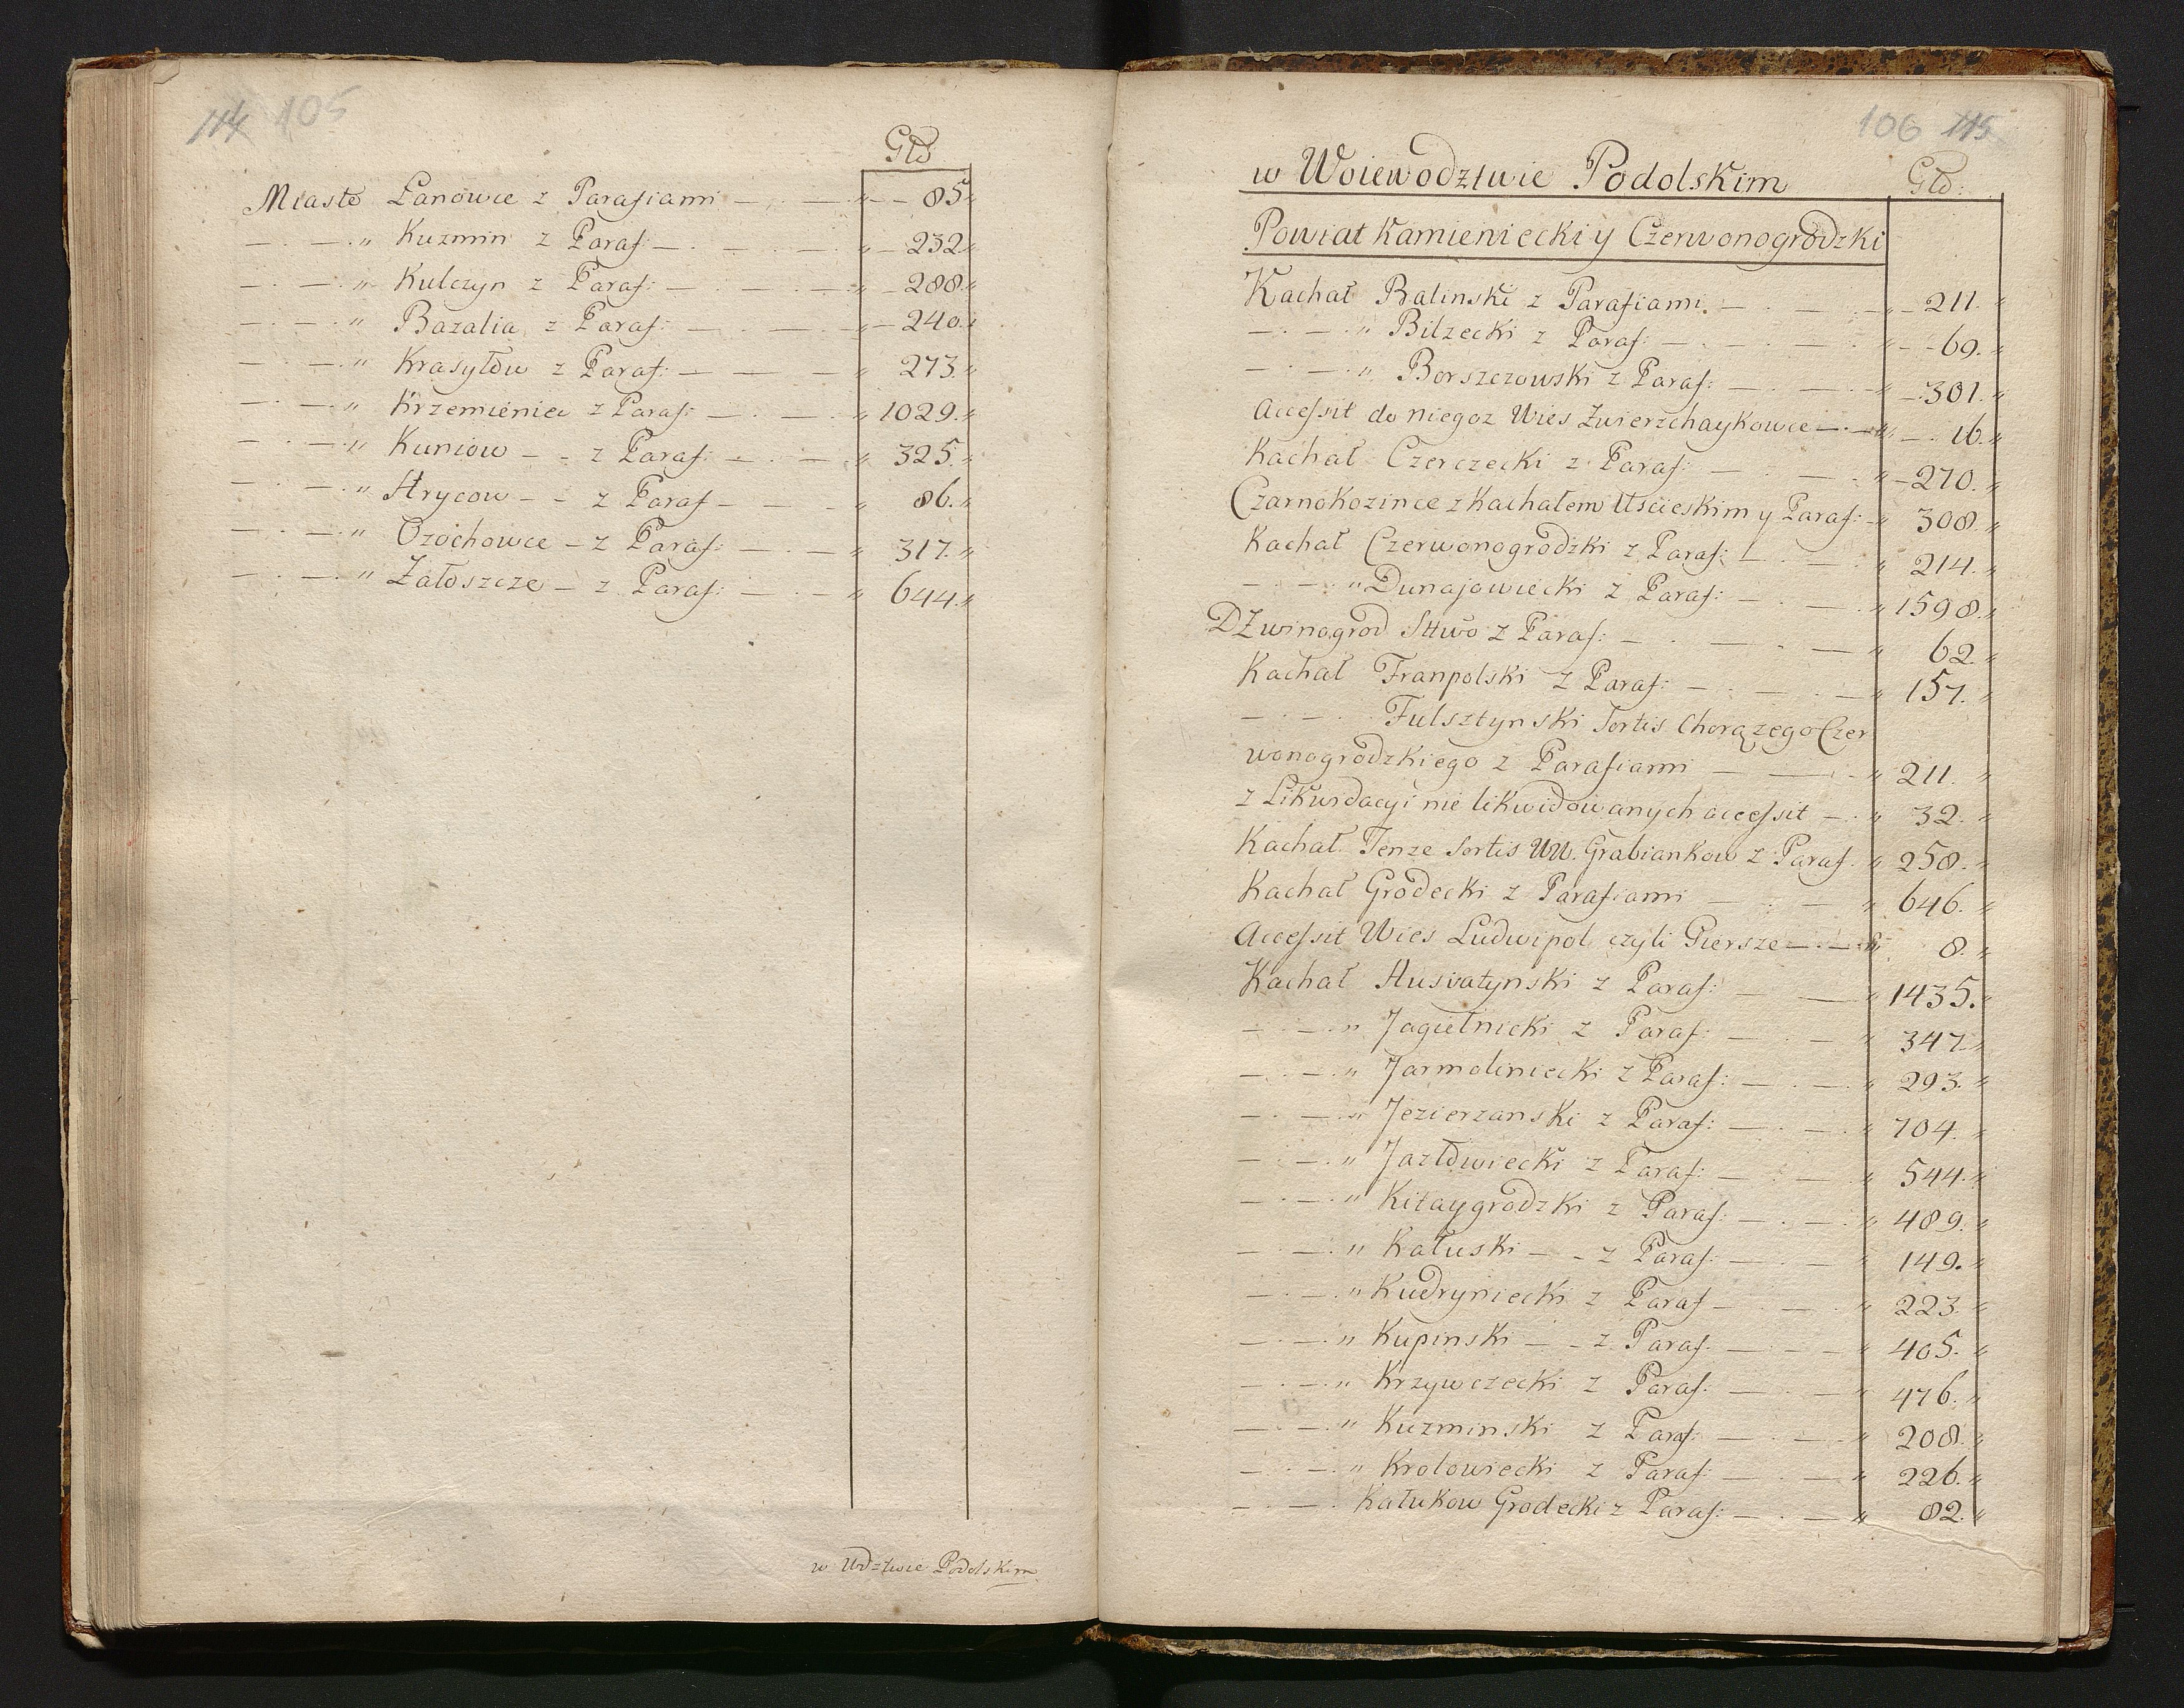 114 105
Głó
Miasto Łanowce z Parafiami — . — „ — 85 „
— . — . „ Kuzmin z Paraf: — . — . — „ — 232 „
— . — . „ Kulczyn z Paraf: — . — . — „ — 288 „
— . — . „ Bazalia z Paraf: — . — . — „ — 240. „
— . — . „ Krasyłow z Paraf: — — — „ 273. „
— . — . „ Krzemieniec z Paraf: — . — . „ 1029. „
— . — . „ Kuniow — z Paraf. — . — „ 325. „
— . — . „ Hrycow — z Paraf — — . „ 86. „
— . — . „ Ozochowce — z Paraf: — . — „ 317. „
— . — . „ Załoszcze — z Paraf: — . — „ 644. „
w Wdztwie Podolskim
106 115
w Woiewodztwie Podolskim Głó:
Powiat Kamieniecki y Czerwonogrodzki
Kachał Balinski z Parafiami. — . — . „ — 211. „
— . — . „ Bilzecki z Paraf: — . — . — „ — 69. „
— . — . „ Borszczowski z Paraf: — . — „ — 301. „
Accessit do niegoz Wies Zwierzchaykowce — . — „ — 16. „
Kachał Czerczecki z Paraf: — . — . „ — 270. „
Czarnokozince z Kachałem Uscieskim y Paraf: „ 308. „
Kachał Czerwonogrodzki z Paraf: — . — . „ 214. „
— . — . „ Dunajowiecki z Paraf: — . — . „ 1598. „
Dzwinogrod Sttwo z Paraf: — . — . — „ 62. „
Kachał Franpolski z Paraf: — . — . — „ 157. „
— . — . Fulsztynski Sortis Chorązego Czer
wonogrodzkiego z Parafiami — — . „ 211. „
z Likwidacyi nie likwidowanych accessit — . „ 32. „
Kachał Tenze Sortis UU. Grabiankow z Paraf. „ 258. „
Kachał Grodecki z Parafiami — . — „ 646. „
Accessit Wies Ludwipol czyli Piersze — . — „ 8. „
Kachał Husiatynski z Paraf: — — „ 1435. „
— . — . „ Jagielnicki z Paraf: — . — „ 347. „
— . — . „ Jarmoliniecki z Paraf: — . — „ 293. „
— . — . „ Jezierzanski z Paraf: — . — „ 704. „
— . — . „ Jazłowiecki z Paraf: — . — „ 544. „
— . — . „ Kitaygrodzki z Paraf: — . — „ 489. „
— . — . „ Kałuski — z Paraf: — . — „ 149. „
— . — . „ Kudryniecki z Paraf — . — . „ 223. „
— . — . „ Kupinski — z Paraf. — . — „ 405. „
— . — . „ Krzywczecki z Paraf: — . — „ 476. „
— . — . „ Kuzminski z Paraf: — . — „ 208. „
— . — . „ Krolowiecki z Paraf: — . — „ 226. „
— . — . Kałukow Grodecki z Paraf: — . — „ 82. „